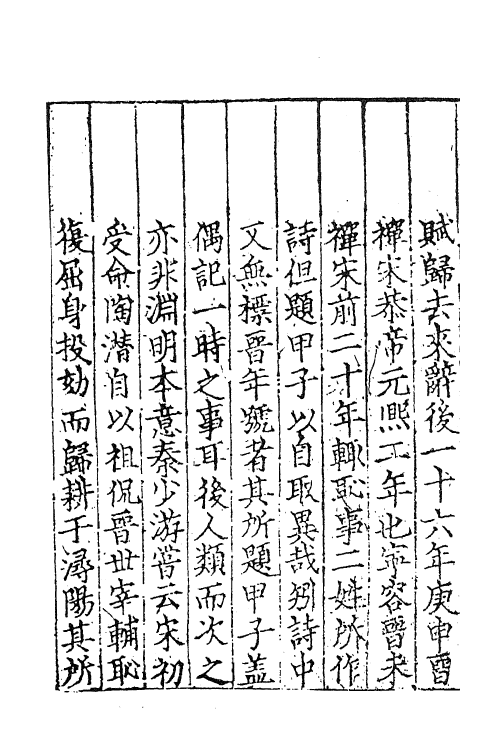 賦歸去來辭後一十六年庚申晉
禪宋恭帝元熙二年也寕容晉未
禪宋前二十年輙恥事二姓所作
詩但題甲子以自取異哉矧詩中
又無標晉年號者其所題甲子盖
偶記一時之事耳後人類而次之
亦非淵明本意秦少游嘗云宋初
受命陶潜自以祖侃晉世宰輔恥
復屈身投劾而歸耕于潯陽其所